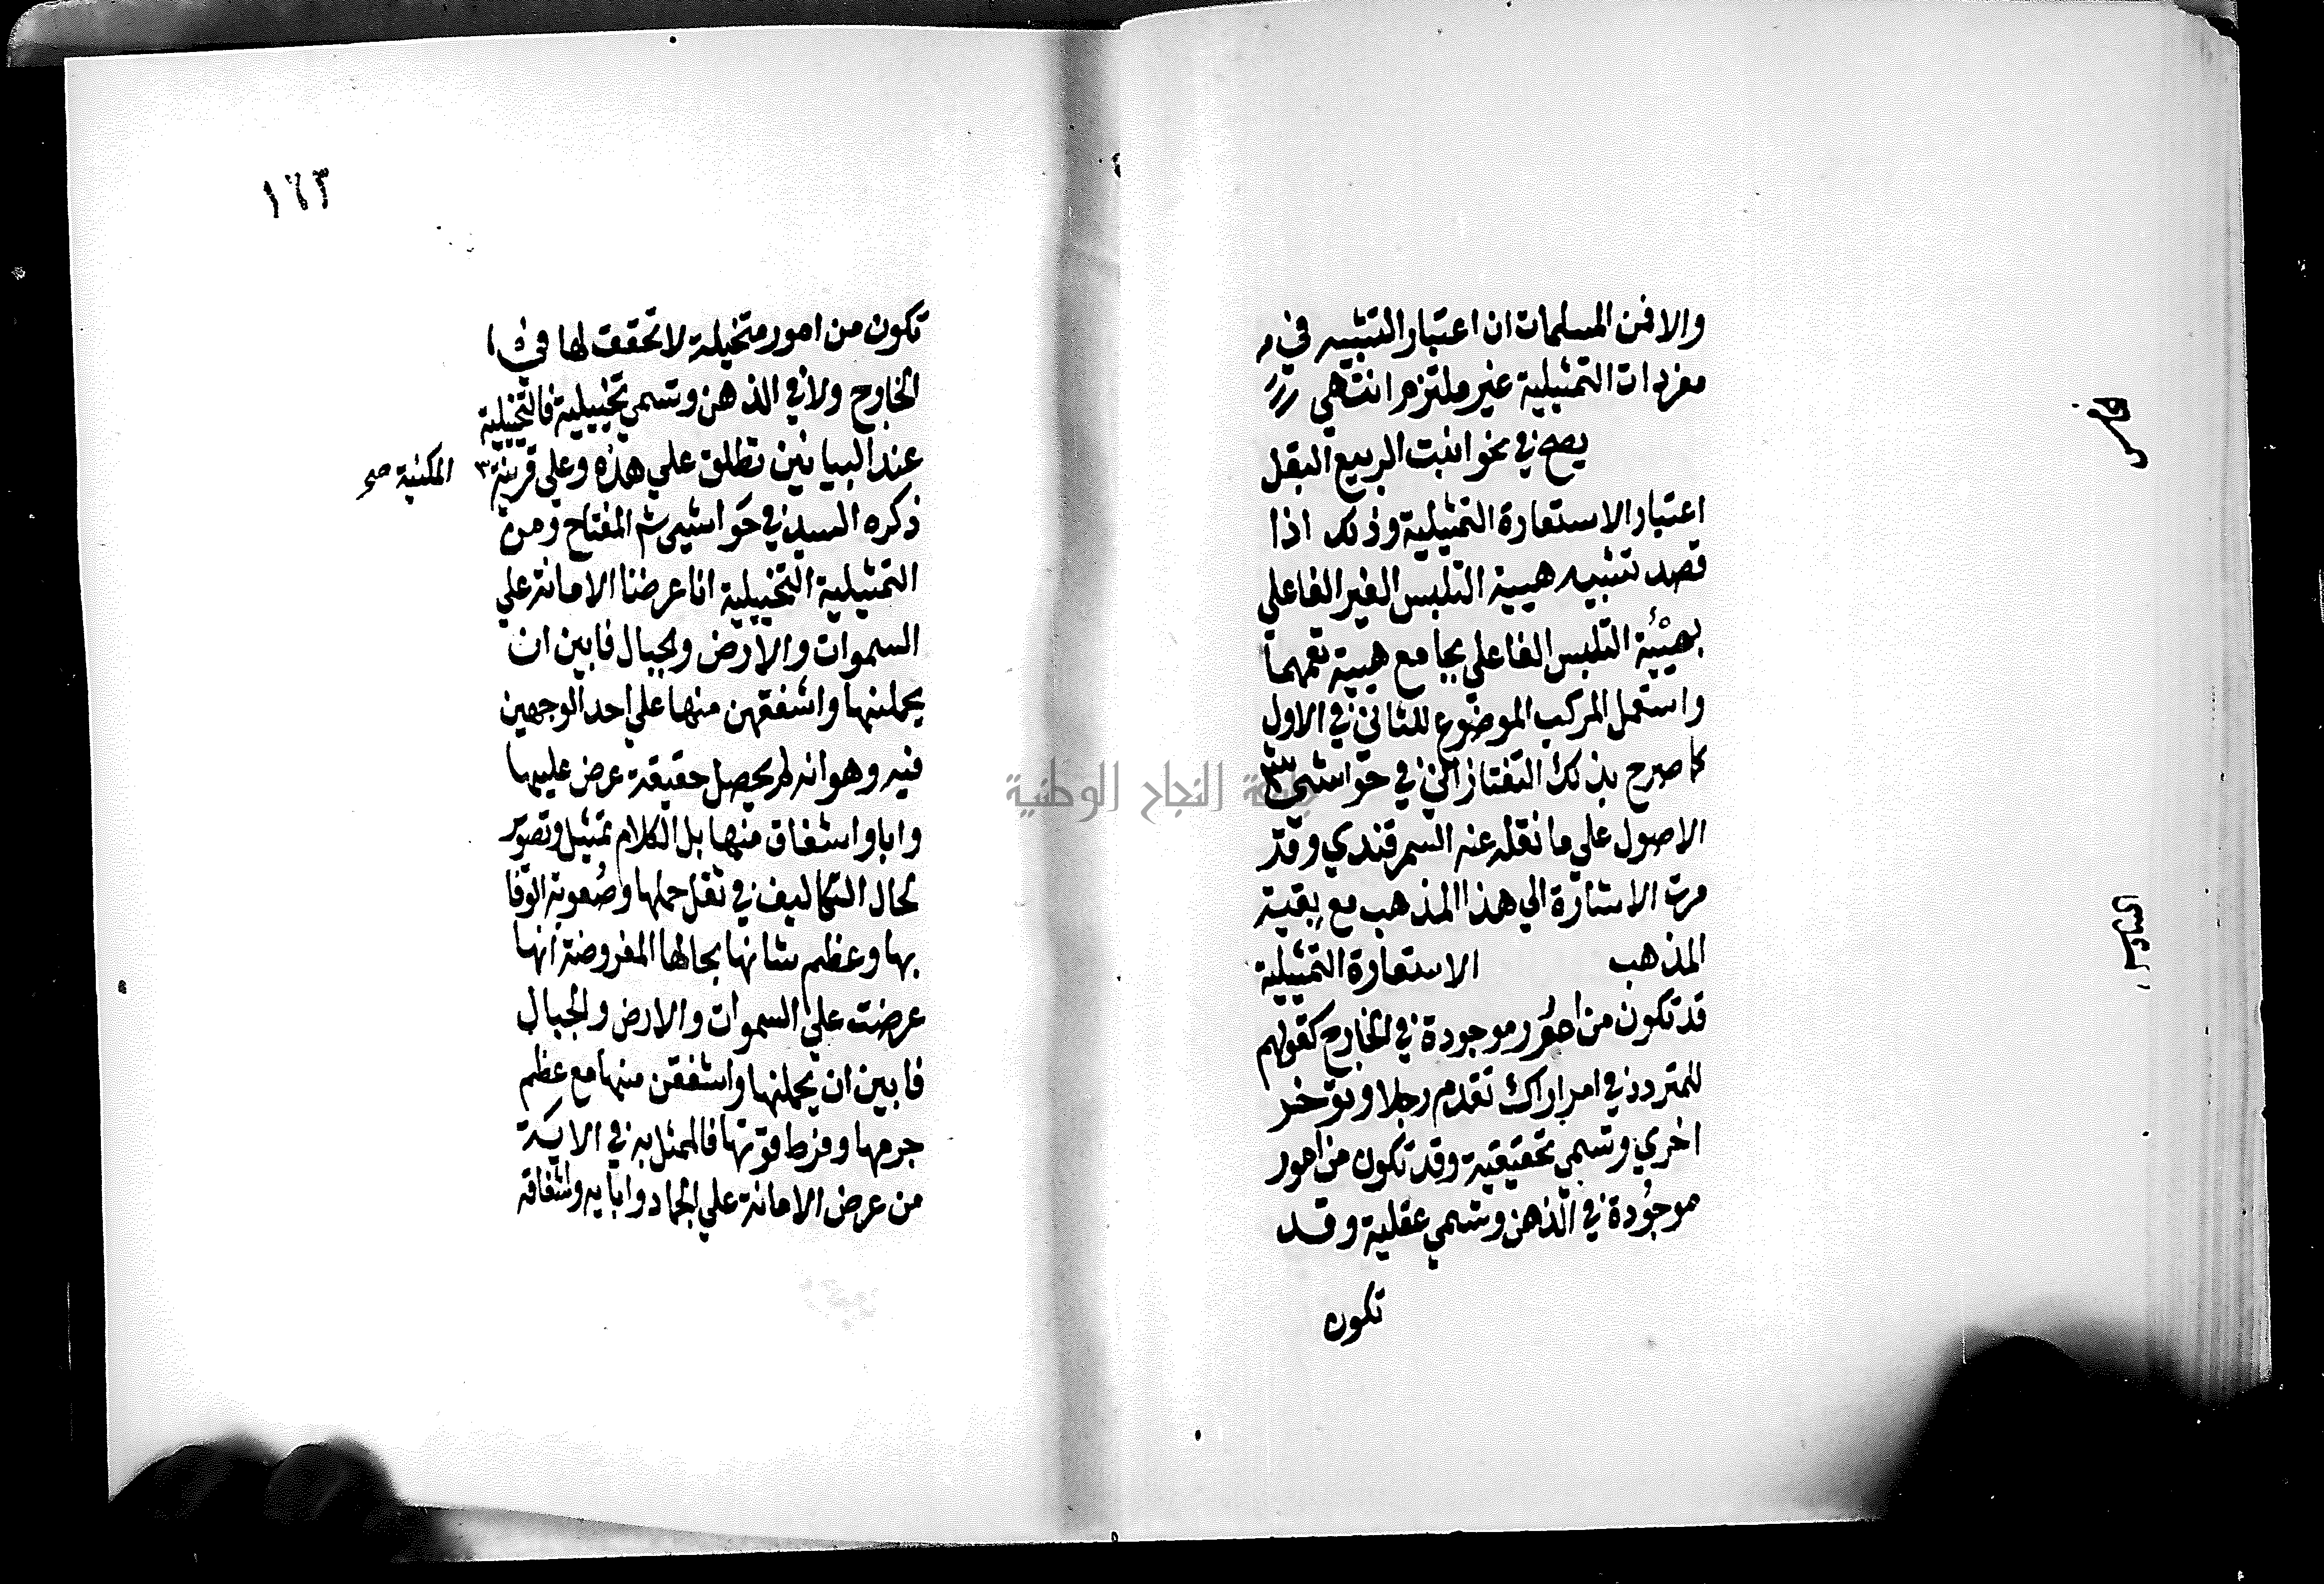 والا فمن المسلمات ان اعتبار التشبيه في
مفردات التمثيلية غير ملتزم انتهى
يصح في نحو انبت الربيع البقل
اعتبار الاستعارة التمثيلية وذلك اذا
قصد تشبيه هيية التلبس الغير الفاعلي
بهيئة التلبس الفاعلي بجامع هيية تعمهما
واستعمل المركب الموضوع للثاني في الاول
كما صرح بذلك التفتازاني في حواشي
الاصول علي ما نقله عنه السمرقندي وقد
مرت الاشارة الي هذا المذهب مع بقية
المذهب الاستعارة التمثيلية
قد تكون من امور موجودة في الخارج كقولهم
للمتردد في امر اراك تقدم رجلا وتوخر
اخري وتسمي تحقيقية وقد تكون من امور
موجودة في الذهن وتسمي عقلية وقد
تكون
السادس
١٦٣
تكون من امور متخيلة لا تحقق لها في
الخارج ولا في الذهن وتسمي تخييلية فالتخييلية
عند البيانين تطلق علي هذه وعلي قرينة
المكنية صح
ذكره السيد في حواشي ش المفتاح ومن
التمثيلية التخييلية انا عرضنا الامانة علي
السموات والارض والجبال فابين ان
يحملنها واشفقهن منها علي احد الوجهين
فيه وهو انه لم يحصل حقيقة عرض عليها
وابا واشفاق منها بل الكلام تمثيل وتصوير
لحال التكاليف في ثقل حملها وصعوبة الوفا
بها وعظم شانها بحالها المفروضة انها
عرضت علي السموات والارض والجبال
فابين ان يحملنها واشفقن منها مع عظم
جرمها وفرط قوتها فالممثل به في الاية
من عرض الامانة علي الجماد وابايه واشفاقه
جامعة النجاح الوطنية